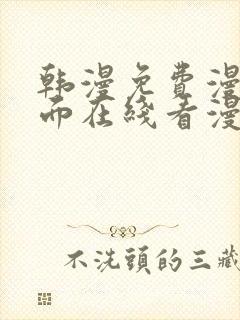 韩漫免費漫
而在綫看漫
不洗頭的三藏